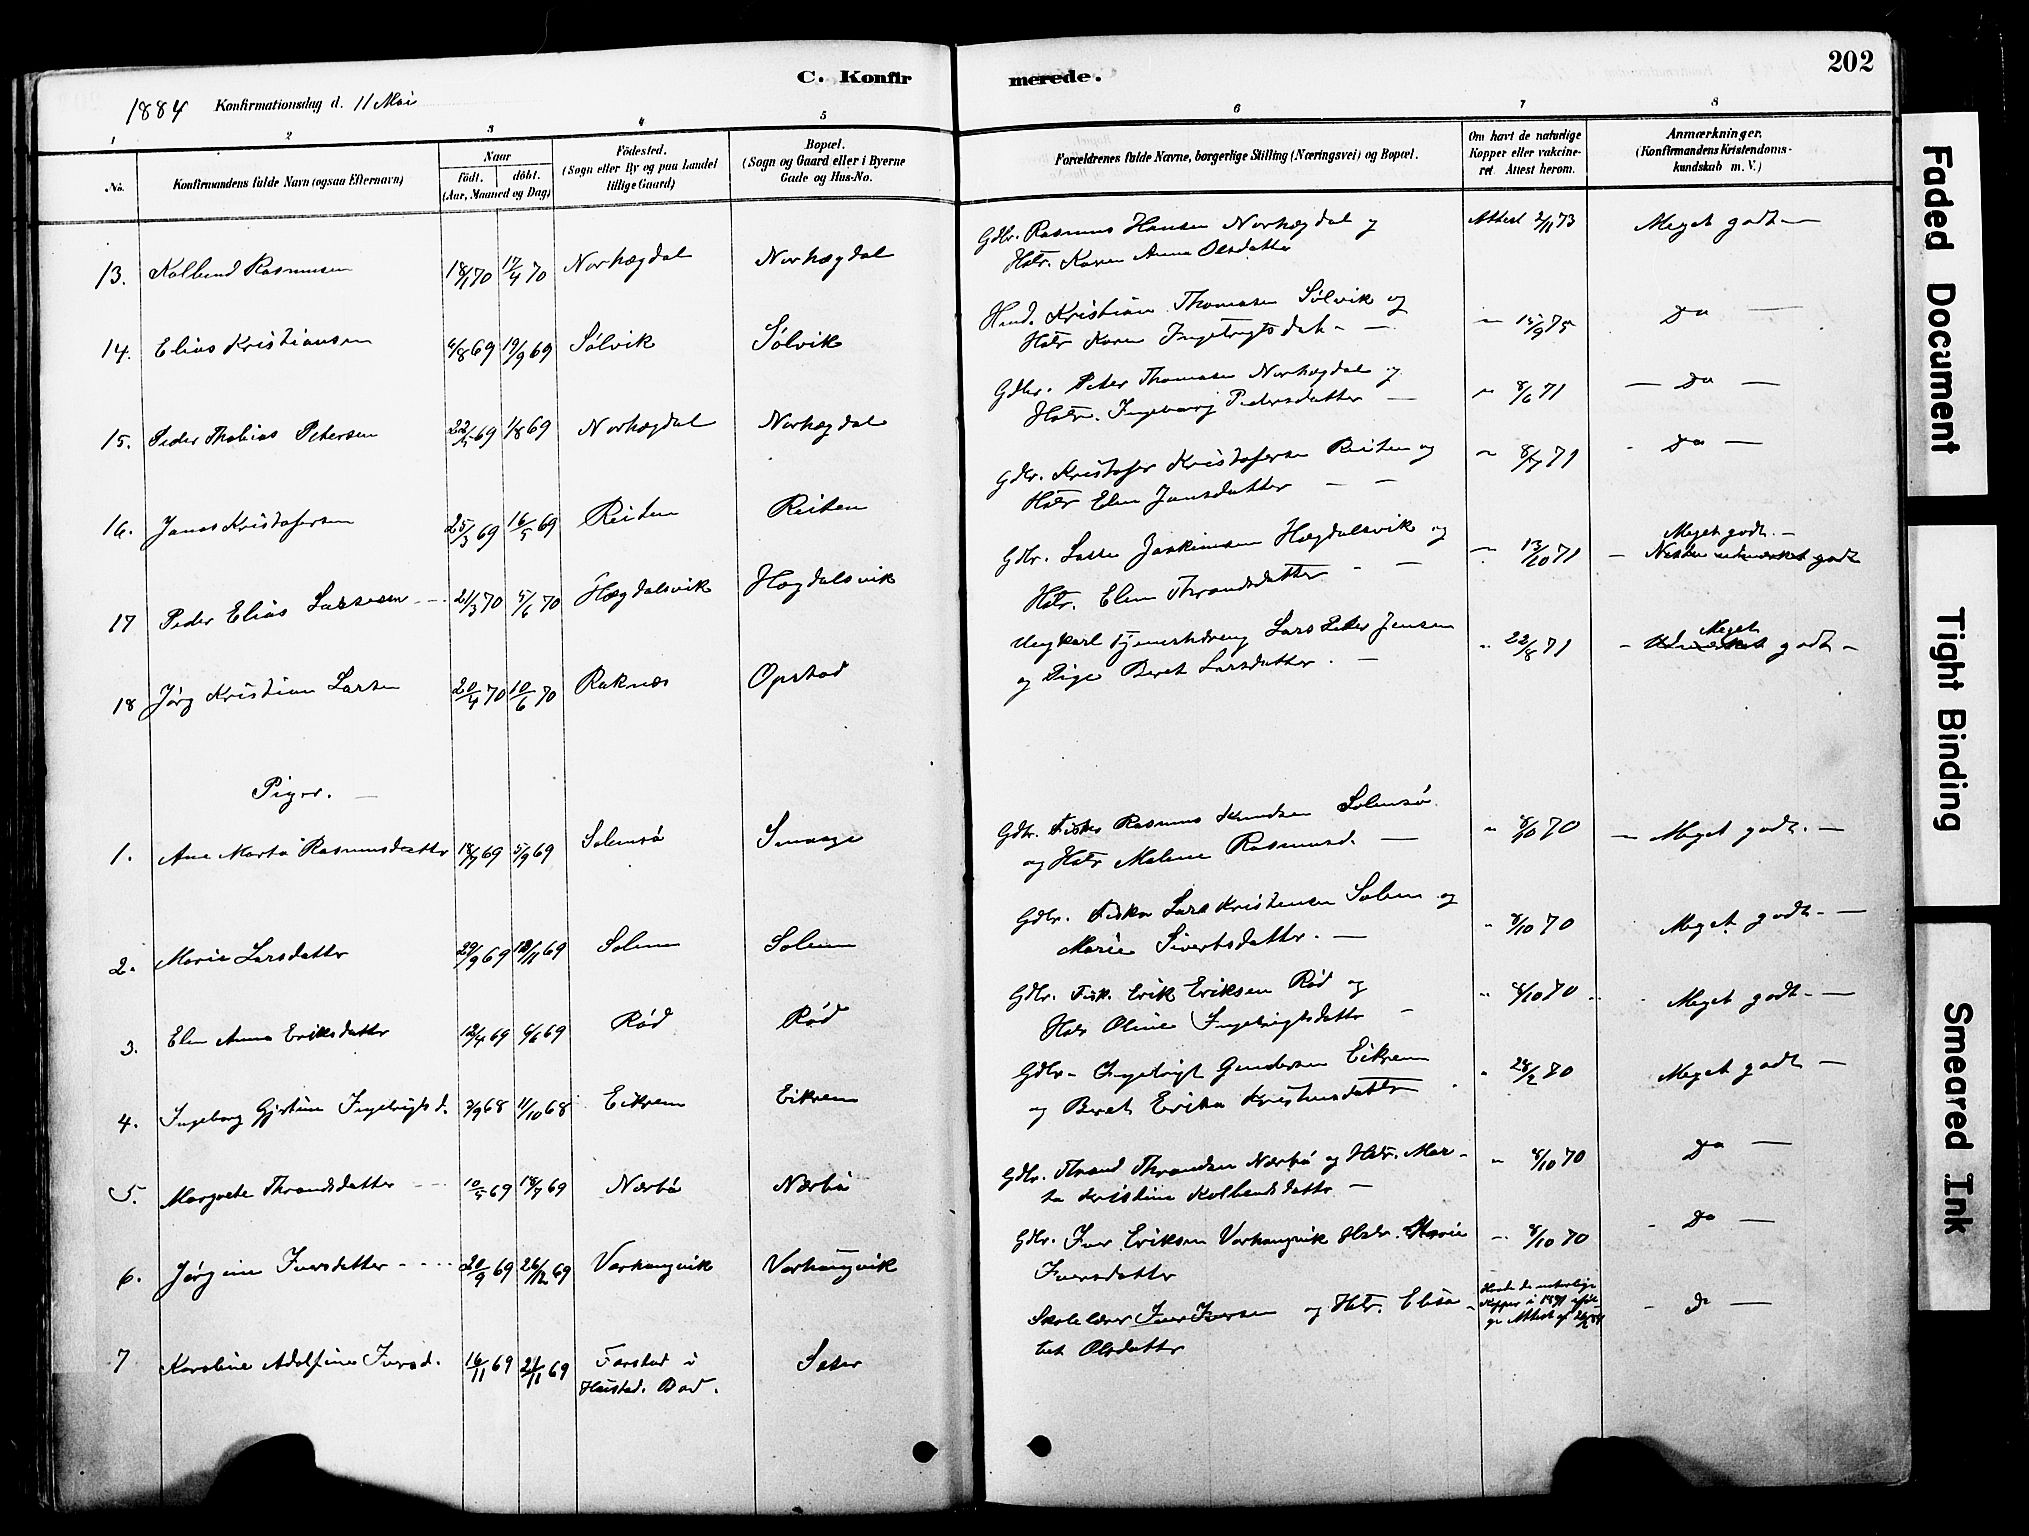 C. Konfir
merede.
202
1884 Konfirmationsdag d. 11 Mai
1 2 3 4 5 6 7 8
No.
Konfirmandens fulde Navn (ogsaa Efternavn)
Naar
födt. döbt.
(Aar, Maaned og Dag)
Födested.
(Sogn eller By og paa Landet
tillige Gaard)
Bopæl.
(Sogn og Gaard eller i Byerne
Gade og Hus-No.
Forældrenes fulde Navne, borgerlige Stilling (Næringsvei) og Bopæl.
Om havt de naturlige
Kopper eller vakcine-
ret. Attest herom.
Anmærkninger.
(Konfirmandens Kristendoms-
kundskab m. V.)
13. Kolbend Rasmussen 18/1 70 17/4 70 Norhægdal Norhægdal
Gdbr. Rasmus Hansen Norhægdal og
Hstr. Karen Anna Olsdatter
Attest 2/11 73 Meget godt —
14. Elias Kristiansen 6/8 69 19/9 69 Sølvik Sølvik
Hmd. Kristian Thomasen Sølvik og
Hstr Karen Ingebrigtsdat. —
— 15/9 75 Do —
15. Peder Thobias Petersen 22/5 69 1/8 69 Norhægdal Norhægdal
Gdbr. Peter Thomasen Norhægdal og
Hstr. Ingeborg Pedersdatter —
" 8/6 71 — Do —
16. Jonas Kristofersen 25/3 69 16/5 69 Reiten Reiten
Gdbr. Kristofer Kristofersen Reiten og
Hstr Elen Jonsdatter — —
" 8/7 71 - Do —
17 Peder Elias Larsen 21/3 70 5/6 70 Hægdalsvik Hægdalsvik
Gdbr. Lasse Joakimsen Hægdalsvik og
Hstr. Elen Throndsdatter - —
— 13/10 71 Meget godt. —
— Næsten udmærket godt
18 Jørg Kristian Larsen 20/4 70 10/6 70 Raknæs Opstad
Ungkarl Tjenestedreng Lars Peter Jensen
og Pige Beret Larsdatter. —
" 22/8 71 Meget
— Udmærket godt —
Piger. —
1. Ane Marta Rasmusdatter 18/7 69 5/9 69 Solemsø Smaage
Gdbr. Fisker Rasmus Knudsen Solemsø
og Hstr Malene Rasmusd. —
" 8/10 70 — Meget godt. —
2. Marie Larsdatter 29/9 69 12/11 69 Solem Solem
Gdbr. Fisker Lars Kristensen Solem og
Marie Sivertsdatter. —
" 8/10 70 Meget godt. —
3. Elen Anna Eriksdatter 12/4 69 6/6 69 Rød Rød
Gdbr. Fisk. Erik Eriksen Rød og
Hstr Oline Ingebrigtsdatter -
" 8/10 70 " Meget godt. —
4. Ingeborg Gjertine Ingebrigtsd. 3/9 68 11/10 68 Eikrem Eikrem
Gdbr. Ingebrigt Gundersen Eikrem
og Beret Erika Kristensdatter
" 28/2 70 Meget godt —
5. Margrete Throndsdatter 10/5 69 18/7 69 Nærbø Nærbø
Gdbr. Thrond Throndsen Nærbø og Hstr. Mar-
ta Kristine Kolbensdatter —
" 8/10 70 Do —
6. Jørgine Iversdatter 20/9 69 26/12 69 Varhaugvik Varhaugvik
Gdbr. Iver Eriksen Varhaugvik Hstr. Marie
Iversdatter
" 8/10 70 - Do —
7 Karoline Adolfine Iversd. 16/11 69 21/11 69 Farstad i
Hustad. Bod. Seter
Skolelærer Iver Iversen og Hstr. Elisa-
bet Olsdatter
Havde de naturlige
Kopper i 1871 ifølge
Attest af
- Do —
Faded Document
Tight Binding
Smeared Ink